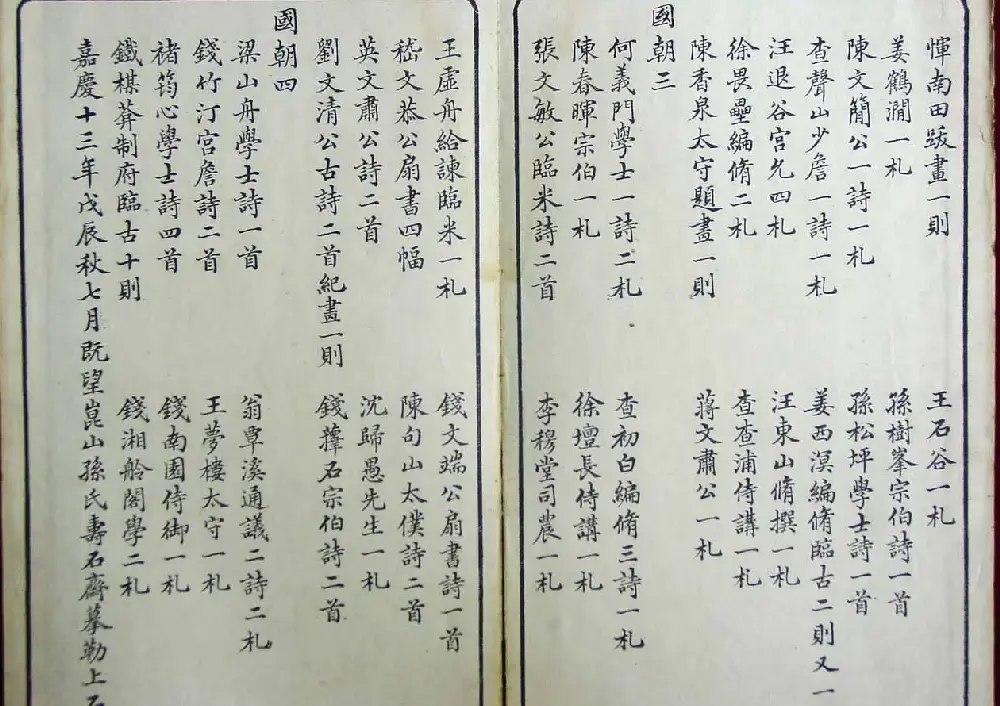 惲南田跋畫一則
王石谷一札
姜鶴澗一札
孫樹峯宗伯詩一首
陳文簡公一詩一札
孫松坪學士詩一首
查聲山少詹一詩一札
姜西溟編脩臨古二則又一
汪退谷宮允四札
汪東山脩撰一札
徐畏壘編脩二札
查查浦侍講一札
陳香泉太守題畫一則
蔣文肅公一札
國朝三
何義門學士一詩二札
查初白編脩三詩一札
陳春暉宗伯一札
徐壇長侍講一札
張文敏公臨米詩二首
李穆堂司農一札
王虛舟給諫臨米一札
錢文端公扇書詩一首
嵇文恭公扇書四幅
陳句山太僕詩二首
英文肅公詩二首
沈歸愚先生一札
劉文清公古詩二首紀畫一則
錢蘀石宗伯詩二首
國朝四
梁山舟學士詩一首
翁覃溪通議二詩二札
錢竹汀宮詹詩二首
王夢樓太守一札
褚筠心學士詩四首
錢南園侍御一札
鐵楳菴制府臨古十則
錢湘舲閣學二札
嘉慶十三年戊辰秋七月既望崑山孫氏壽石齋摹勒上石